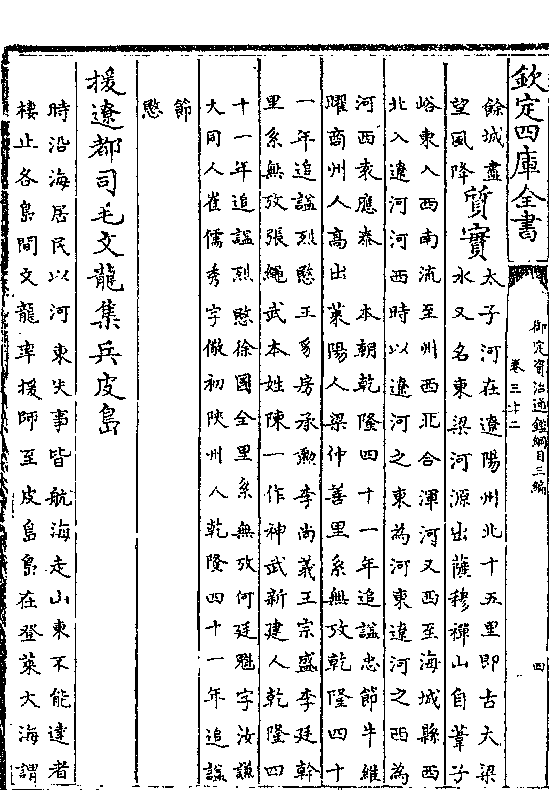 欽定四庫全書
御定資治通鑑綱目三編
卷三十二
四
餘城盡
望風降
質實
太子河在遼陽州北十五里即古大梁
水又名東梁河源出薩穆禪山自葦子
峪東入西南流至州西北合渾河又西至海城縣西
北入遼河河西時以遼河之東為河東遼河之西為
河西袁應泰 本朝乾隆四十一年追諡忠節牛維
曜商州人高出萊陽人梁仲善里系無攷乾隆四十
一年追諡烈愍王豸房承勲李尚義王宗盛李廷幹
里系無攷張繩武本姓陳一作神武新建人乾隆四
十一年追諡烈愍徐國全里系無攷何廷魁字汝謙
大同人崔儒秀字儆初陜州人乾隆四十一年追諡
節
愍
援遼都司毛文龍集兵皮島
時沿海居民以河東失事皆航海走山東不能達者
棲止各島間文龍率援師至皮島島在登萊大海謂